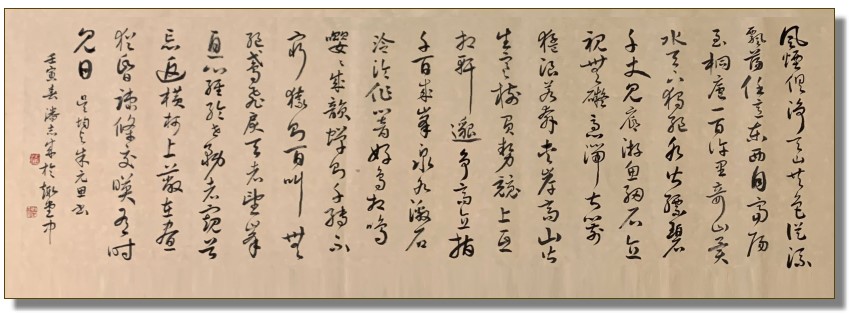 風煙俱淨天山共色從流
飄蕩任意東西自富陽
至桐廬一百許里奇山異
水天下獨絕水皆縹碧
千丈見底游魚細石直
視無礙急湍甚箭
猛浪若奔夾岸高山皆
生寒樹負勢競上互
相軒邈爭高直指
千百成峯泉水激石
泠泠作響好鳥相鳴
嚶嚶成韻蟬則千轉不
窮猿則百叫無
絕鳶飛戾天者望峯
息心經綸世務者窺谷
忘返橫柯上蔽在晝
猶昏疏條交映有時
見日 吳均與朱元思書
壬寅春潘志於堂中